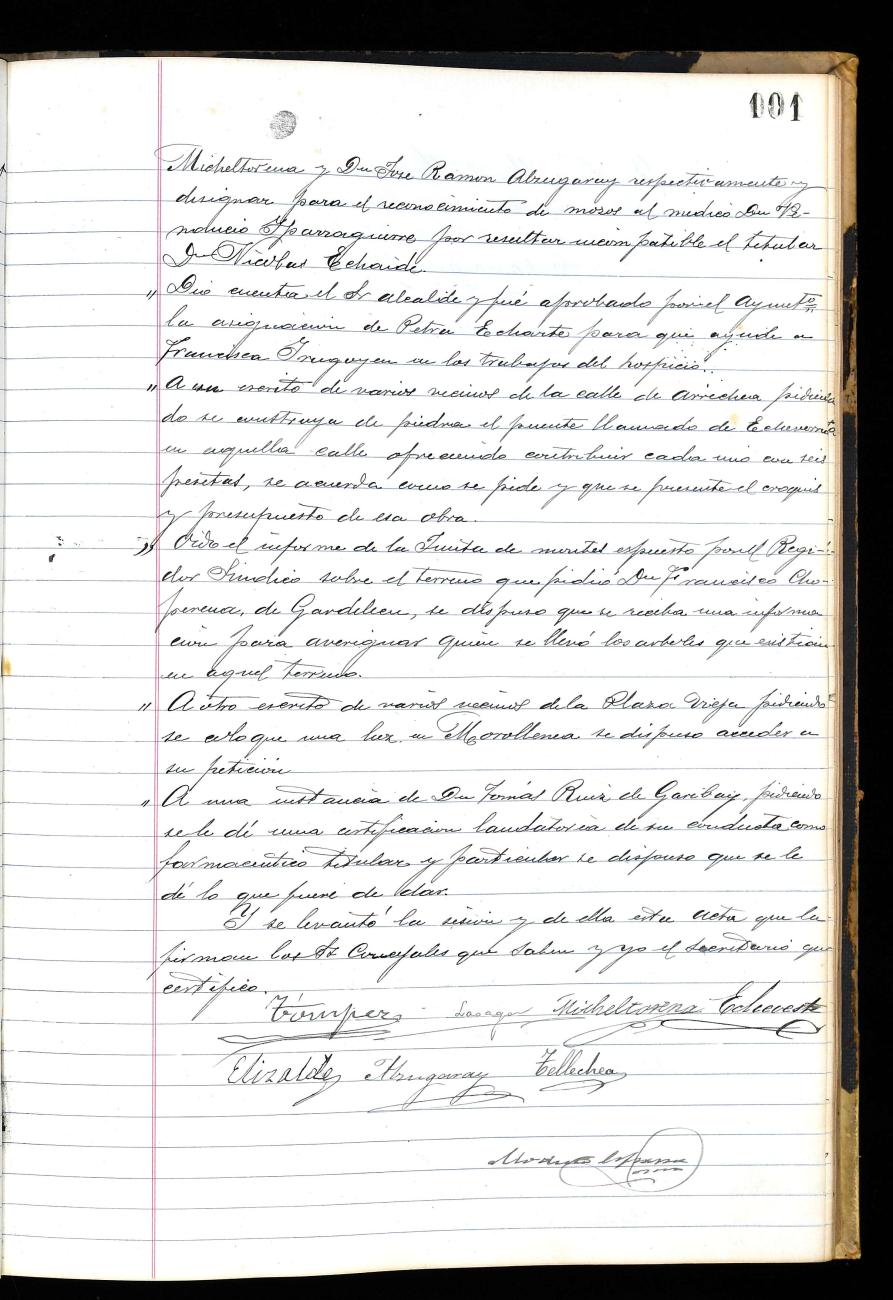 101
Micheltorena y Dn Jose Ramon Alzugaray respectivamente y
disignar para el reconocimiento de mozos al medico Dn Ve-
nancio Yparraguirre por resultar incompatible el titular
Dn Nicolas Echaide.
" Dió cuenta el Sr alcalde y fué aprobado por el Ayunto
la asignacion de Petra Echarte para que ayude a
Francisca Irugoyen en los trabajos del hospicio.
" A un escrito de varios vecinos de la calle de Arrechea pidien
do se construya de piedra el puente llamado de
en aquella calle ofreciendo contribuir cada uno con seis
pesetas, se acuerda como se pide y que se presente el croquis
y presupuesto de esa obra.
" Oido el informe de la Junta de montes expuesto por el Regi-
dor Sindico sobre el terreno que pidió Dn Francisco Cho-
perena, de Gardelecu, se dispuso que se reciba una informa
cion para averiguar quien se llevó los arboles que existian
en aquel terreno.
" A otro escrito de varios vecinos de la Plaza vieja pidiendo
se coloque una luz en se dispuso acceder a
su petición
" A una instancia de Dn Tomás Ruiz de Garibay, pidiendo
se le dé una certificacion laudatoria de su conducta como
farmaceutico titular y particular se dispuso que se le
dé lo que fuere de dar.
Y se levantó la sesion y de ella esta acta que la
firman los Sr Concejales que saben y yo el secretario que
certifico.
Tómper Lasaga Micheltorena Echeveste
Elizalde Alzugaray Tellechea
Modesto Esparza